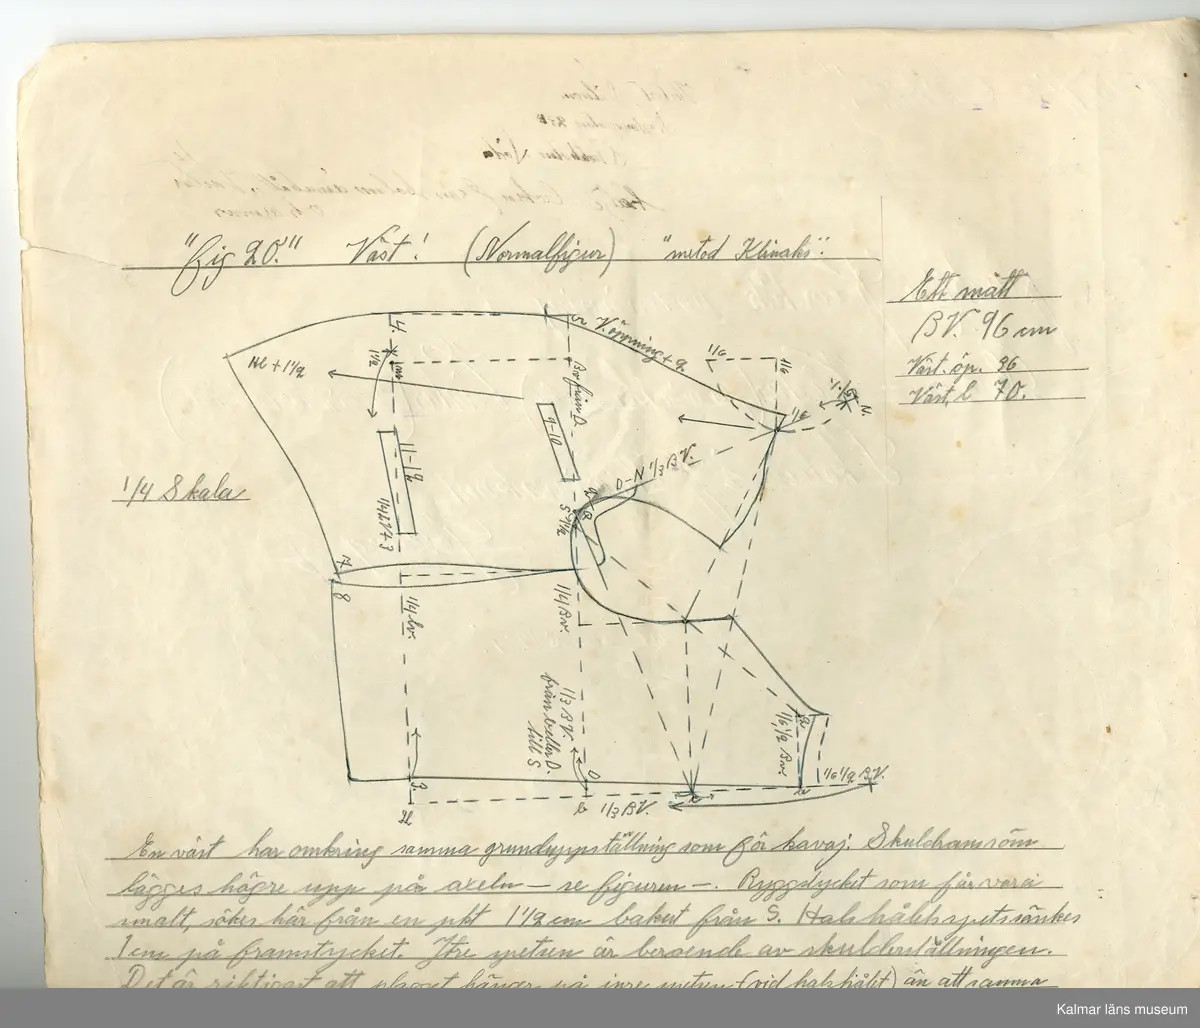 "fig 20." Väst! (Normalfigur) "metod Klinaks".
Ett mått
BV. 96 cm
Väst. öp. 26
Väst. l 70.
1/4 Skala
Hl + 1 1/2
4.
1 1/2
V. öppning + 2
1/6
1/6
1/6
N.
Bv från O.
9-10
11-12
1/4 LV + 3
O-N 1/3 BV.
S 1 1/2
7.
8
1/4 lv.
1/4 Bv.
1/3 BV.
från eller O.
till S.
1/6 1/2 Bv.
1/6 1/2 BV.
1/3 BV.
3
O
En väst har omkring samma grunduppställning som för kavaj. Skuldransöm
lägges högre upp på axeln — se figuren —. Ryggstycket som får vara
smalt, sökes här från en pkt 1 1/2 cm bakut från S. Halshålets spets sänkes
1 cm på framstycket. Yre spetsen är beroende av skulderställningen.
Det är riktigast att plagget hänger på inre spetsen (vid halshålet) än att samma
Kalmar läns museum